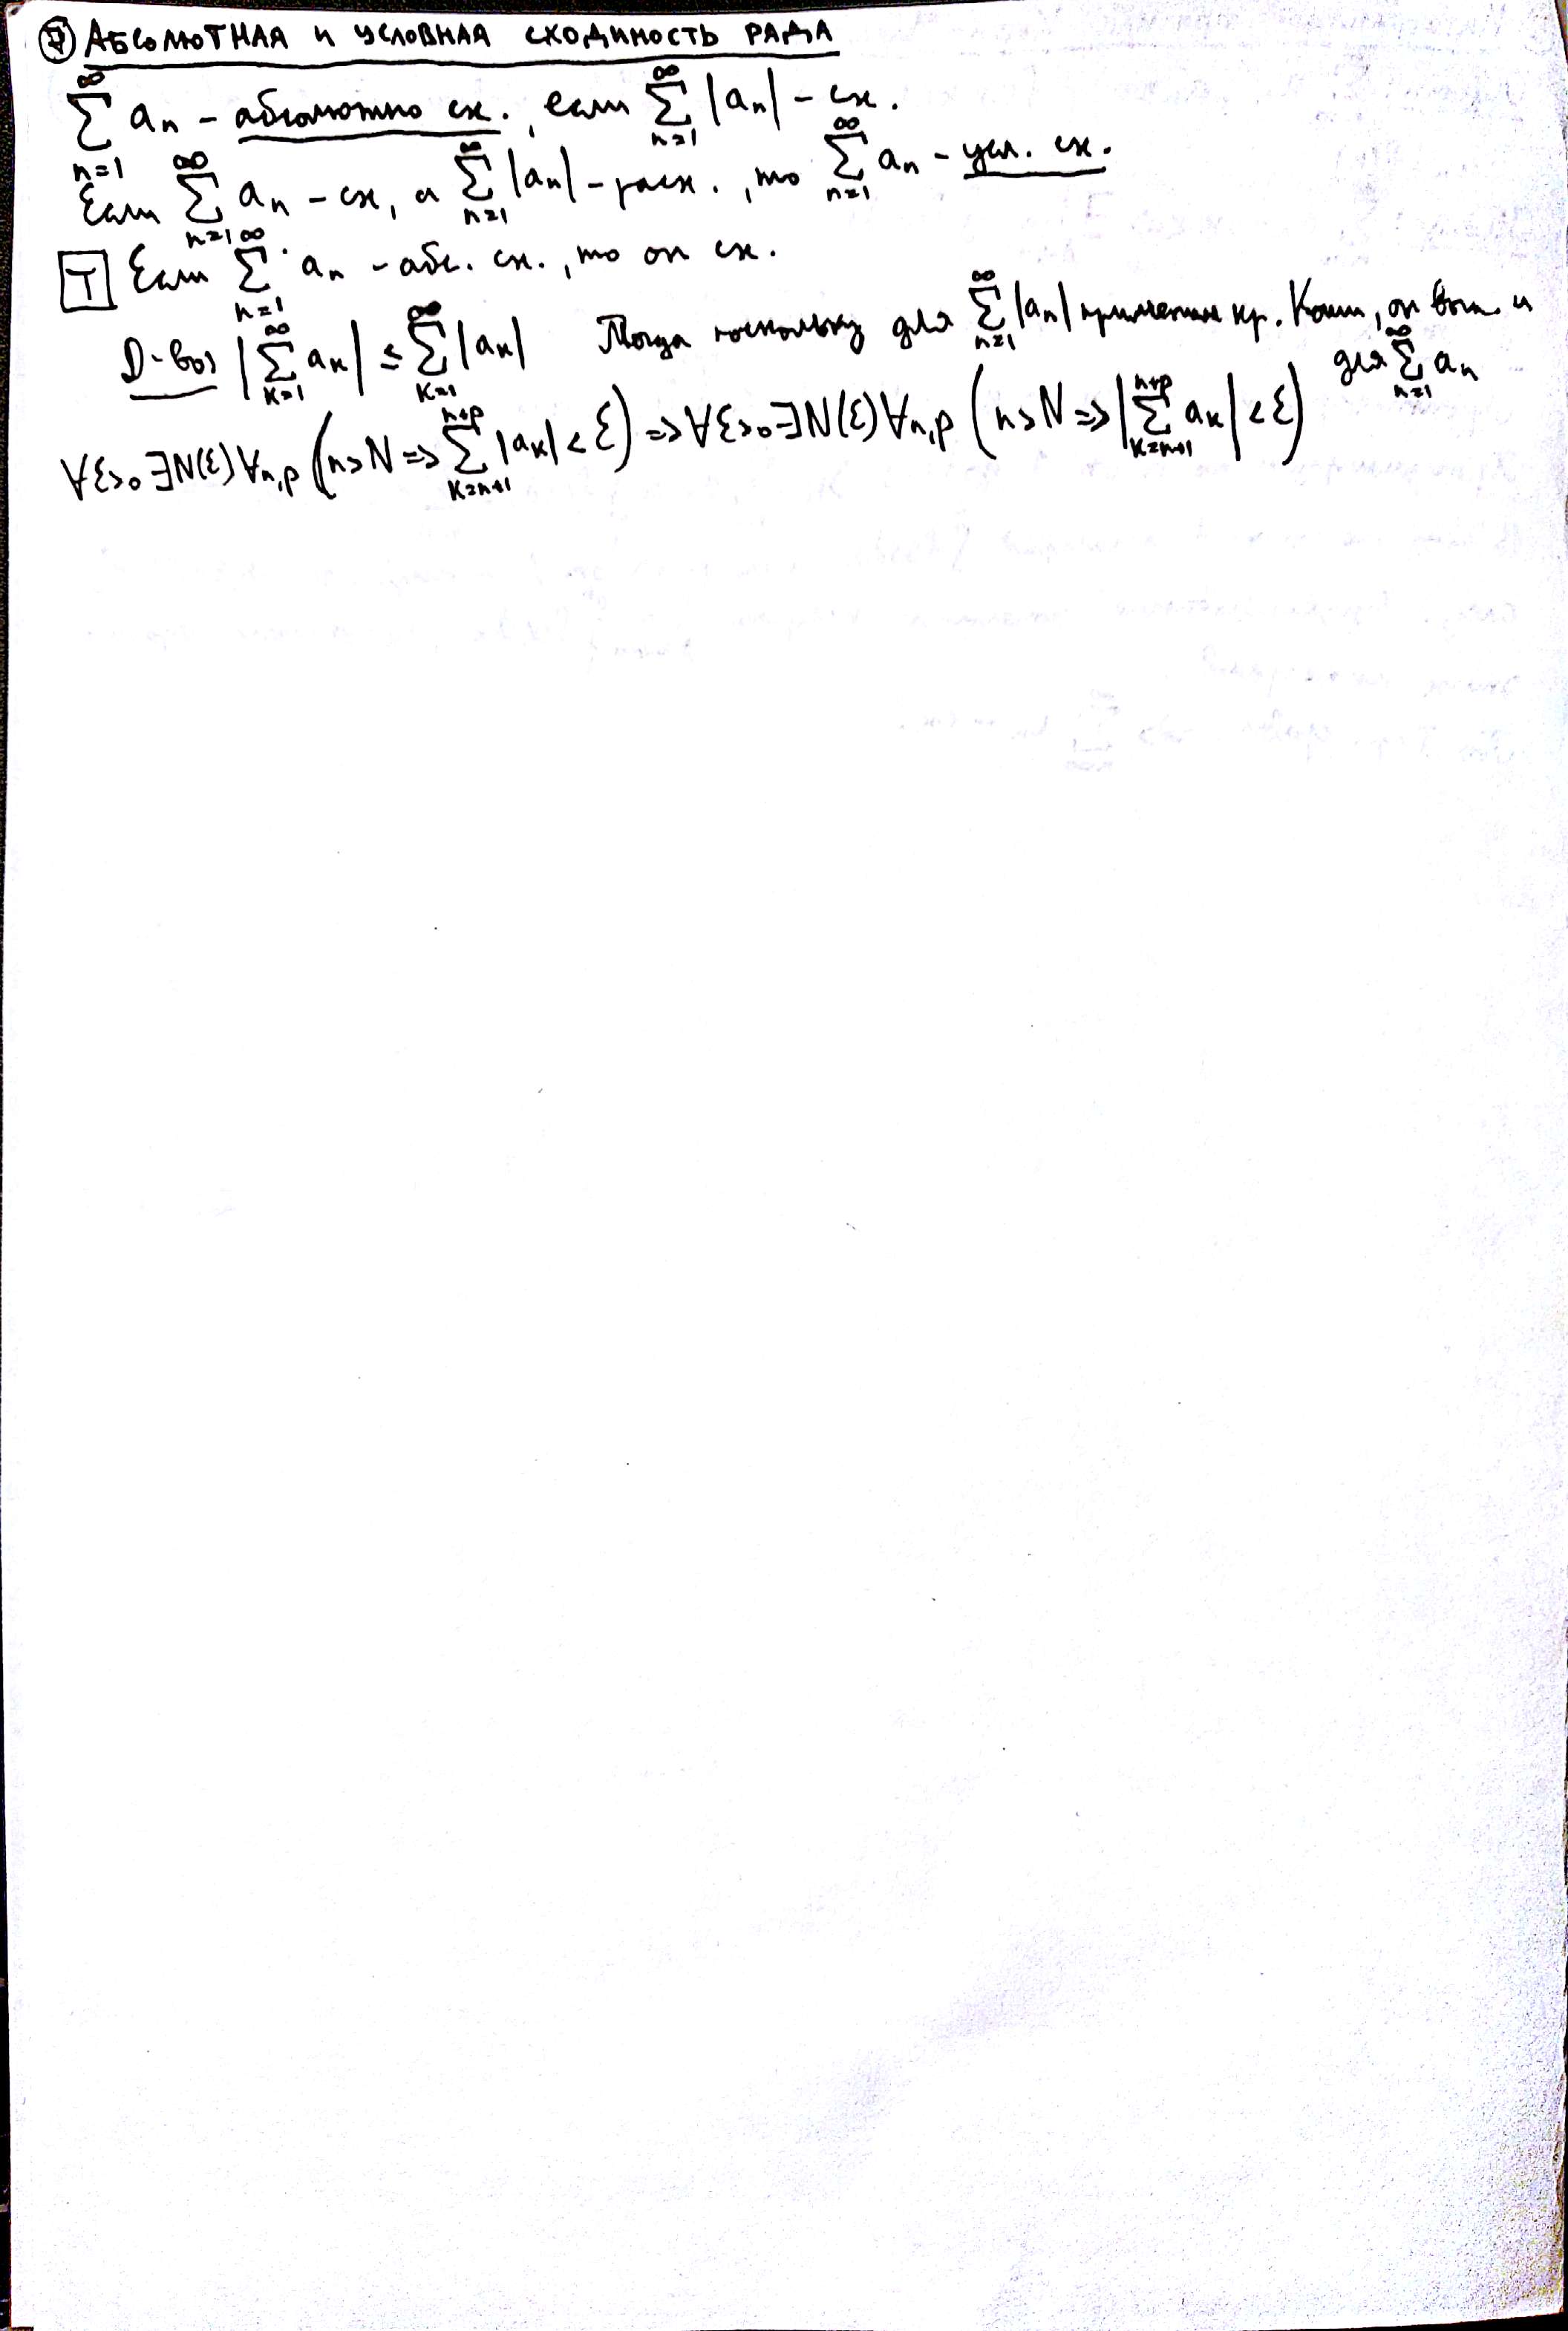 ⑦ Абсолютная и условная сходимость ряда
∑_{n=1}^{∞} aₙ – абсолютно сх., если ∑_{n=1}^{∞} |aₙ| – сх.
Если ∑_{n=1}^{∞} aₙ – сх, а ∑_{n=1}^{∞} |aₙ| – расх., то ∑_{n=1}^{∞} aₙ – усл. сх.
T Если ∑_{n=1}^{∞} aₙ – абс. сх., то он сх.
D-во: |∑_{k=1}^{∞} aₖ| ≤ ∑_{k=1}^{∞} |aₖ| Тогда поскольку для ∑_{n=1}^{∞} |aₙ| применим кр. Коши, он вып. и для ∑_{n=1}^{∞} aₙ
∀ε>0 ∃N(ε) ∀n,p (n>N => ∑_{k=n+1}^{n+p} |aₖ| < ε) => ∀ε>0 ∃N(ε) ∀n,p (n>N => |∑_{k=n+1}^{n+p} aₖ| < ε)